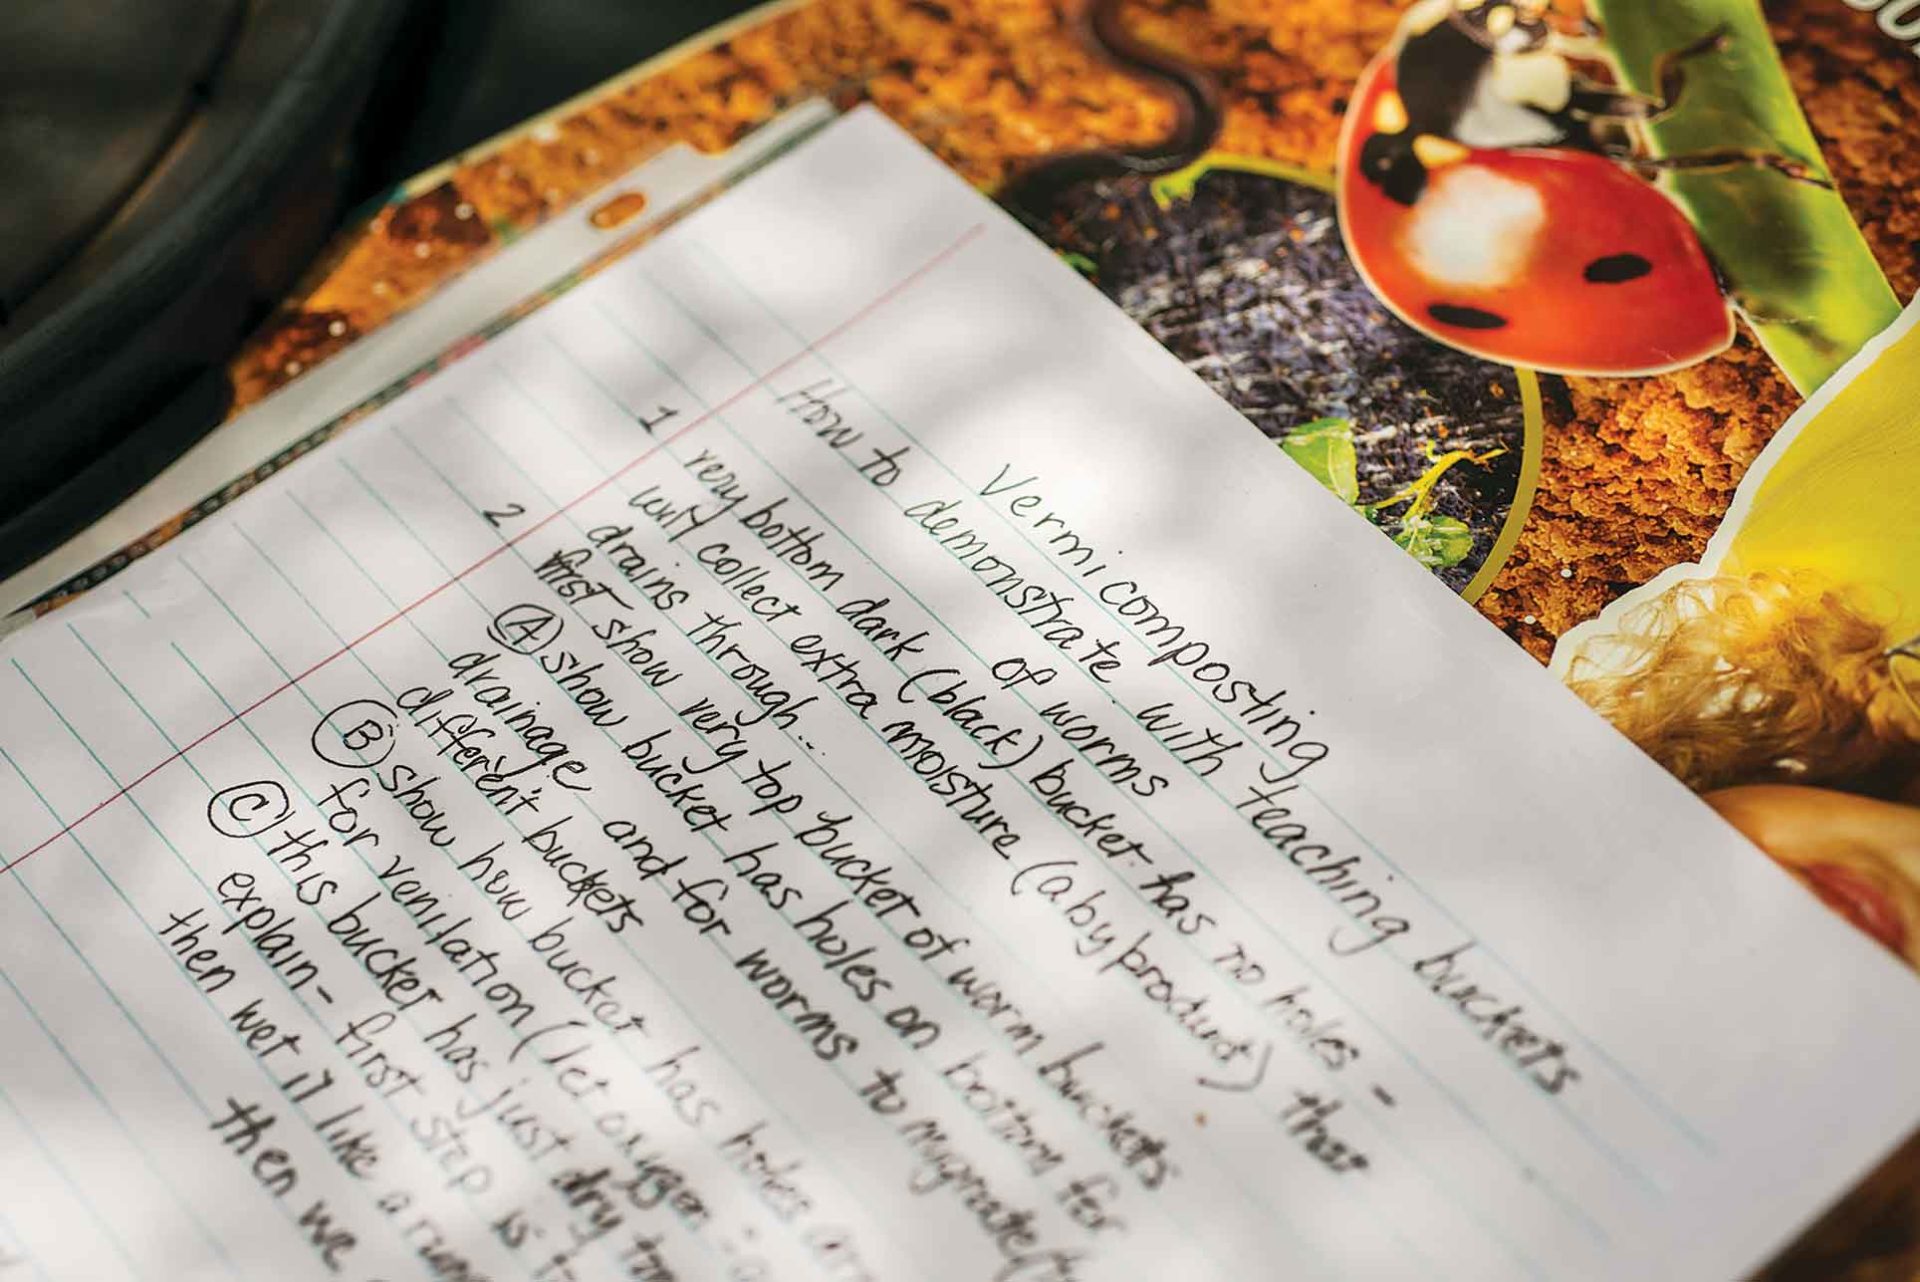 Vermicomposting
How to demonstrate with teaching buckets
of worms
1 very bottom dark (black) bucket has no holes -
will collect extra moisture (a byproduct) that
drains through...
2 first show very top bucket of worm buckets
(A) show bucket has holes on bottom for
drainage and for worms to migrate (
different buckets
(B) show how bucket has holes
for venilation (let oxygen -
(C) this bucket has just dry
explain - first step is
then wet it like a
then we